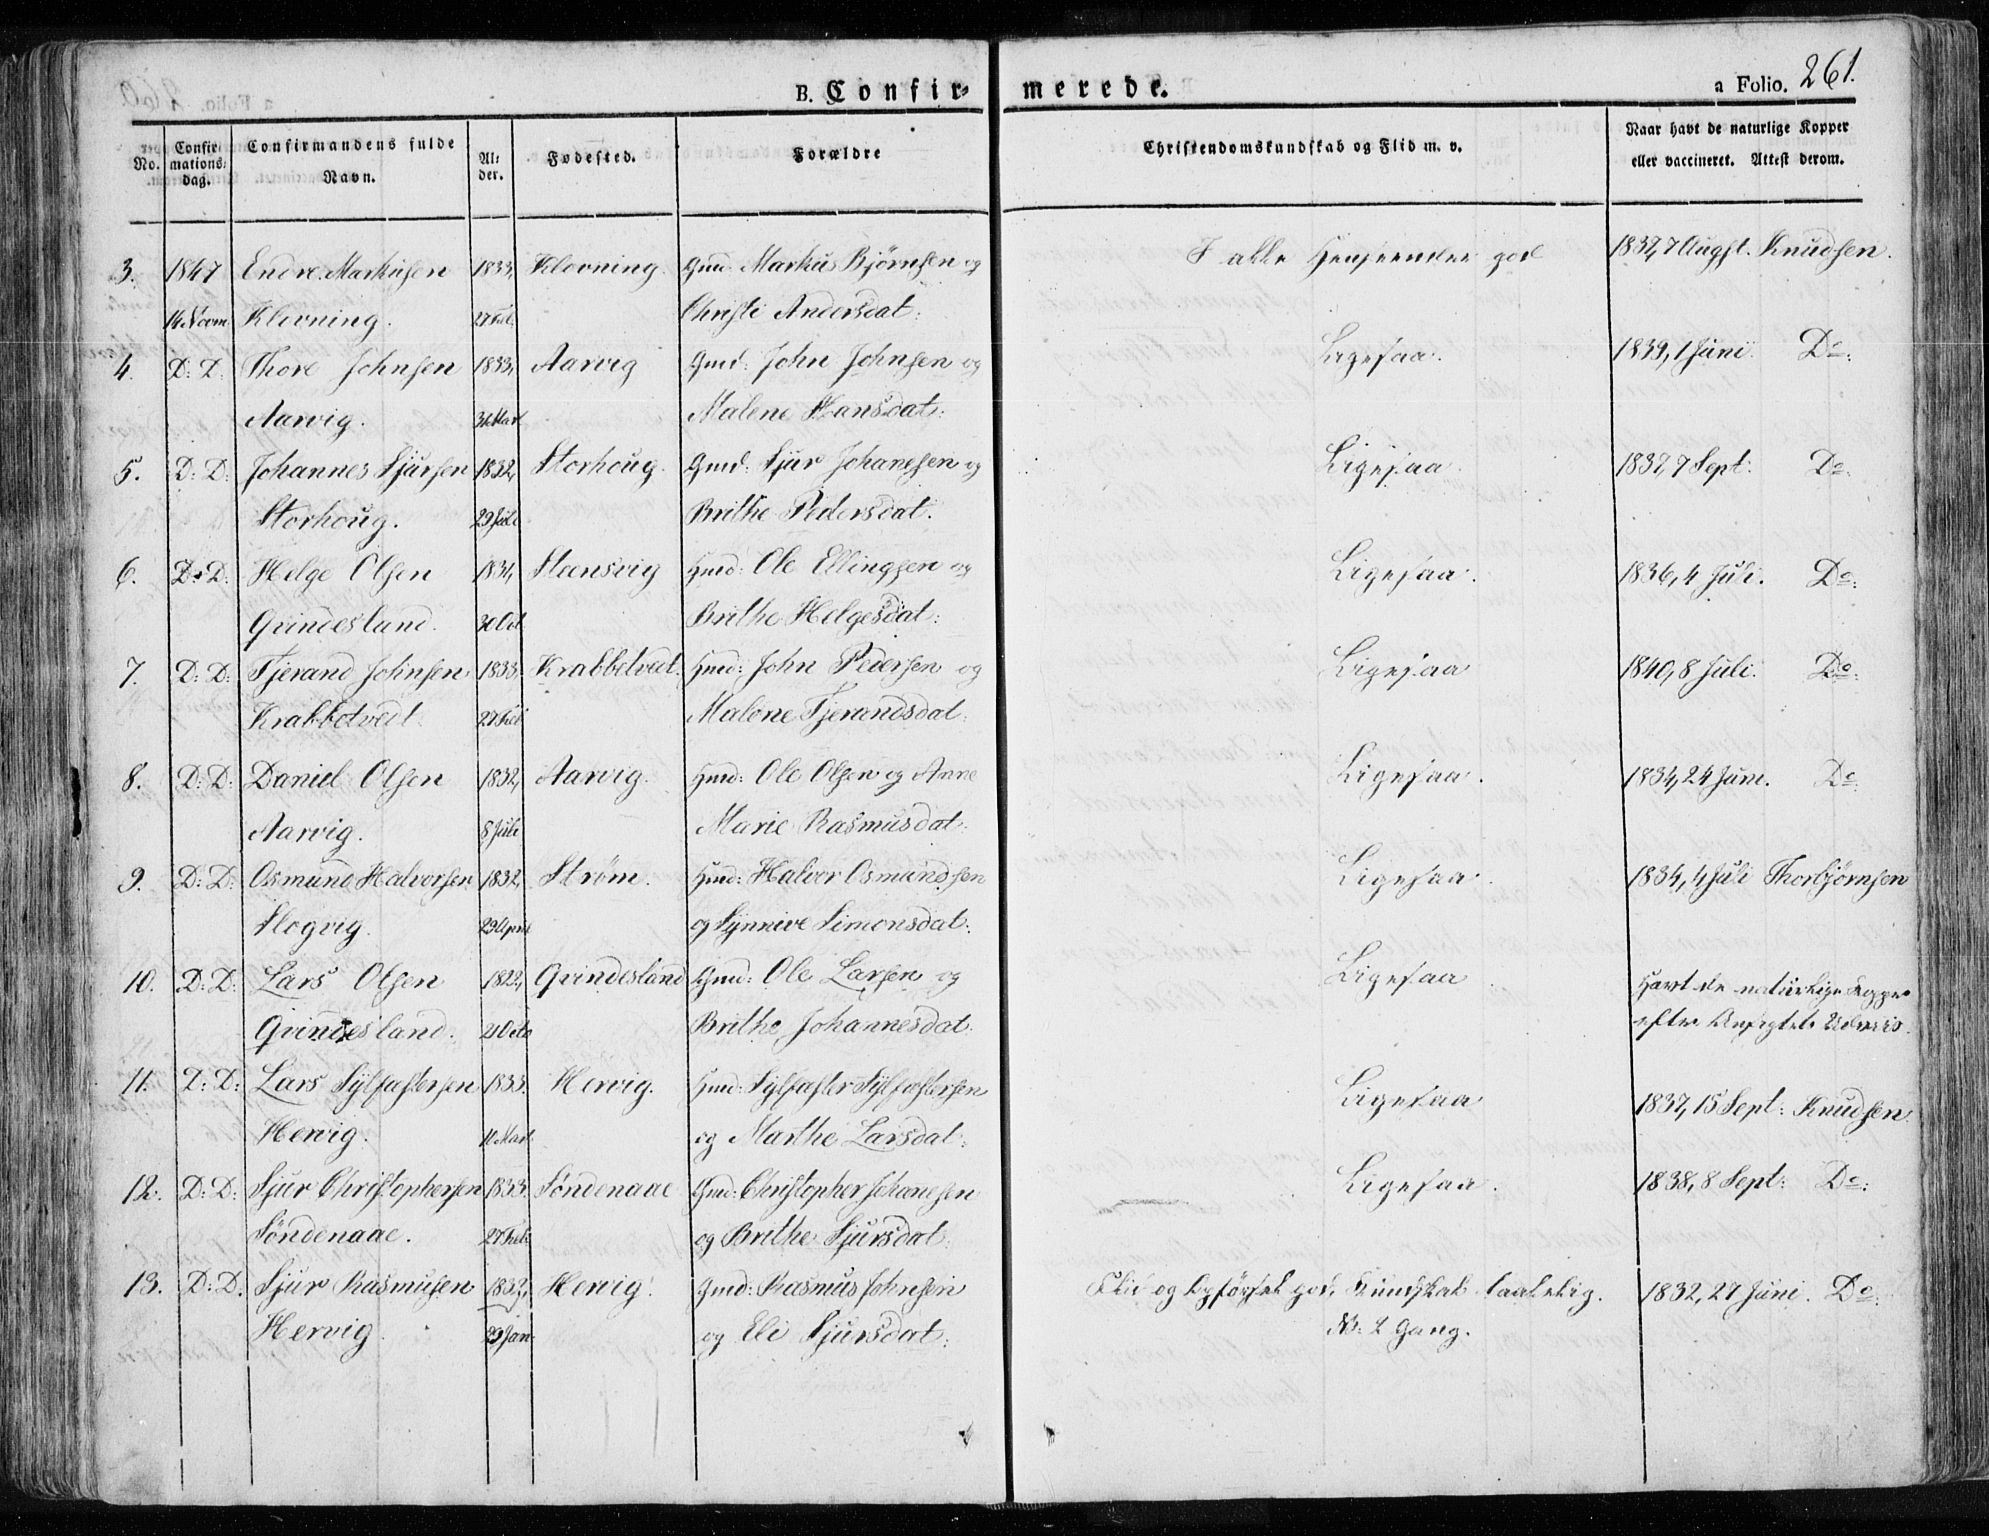 B. Confir-
merede.
a Folio. 261.
No.
Confir
mations-
dag.
Confirmandens fulde
Navn.
Al-
der.
Fødested.
Forældre
Christendomskundskab og Flid m. v.
Naar havt de naturlige Kopper
eller vaccineret. Attest derom.
3. 1847 Endre Markusen 1833, Klovning. Gmd: Markus Bjørnsen og I alle Henseender god 1832, 7 Augst. Knudsen.
14 Novm Klovning. 27 Feb. Christi Andersdat:
4. D: D: Thore Johnsen 1833, Aarvig Gmd: John Johnsen og Ligesaa. 1839, 1 Juni Do:
Aarvig. Mart Malene Hansdat:
5. D: D: Johannes Sjursen 1832, Storhoug. Gmd: Sjur Johanesen og Ligesaa. 1837, 7 Sept: Do:
Storhoug. 29 Juli Brithe Pedersdat:
6. D: D: Helge Olsen 1831, Steensvig Hmd: Ole Ellingsen og Ligesaa. 1836, 4 Juli. Do:
Grindesland. Oct Brithe Helgesdat:
7. D: D: Tjerand Johnsen 1833. Krabbetvedt. Hmd: John Pedersen og Ligesaa 1840, 8 Juli. Do:
Krabbetvedt. 27 Feb Malene Tjerandsdat:
8. D: D: Daniel Olsen 1832, Aarvig. Hmd: Ole Olsen og Anne Ligesaa. 1834, 24 Juni. Do:
Aarvig. 8 Juli Marie Rasmusdat:
9. D: D: Osmund Halvorsen 1832, Strøm. Hmd: Halvor Osmundsen Ligesaa. 1834, 4 Juli Thorbjørnsen
Slogvig. 29 April og Synnive Simonsdat:
10. D: D: Lars Olsen 1822, Grindesland Gmd: Ole Larsen og Ligesaa Havt de naturlige Kopper
Grindesland. Octo Brithe Johannesdat: efter Ansigtets Udvis.
11. D: D: Lars Sylfastersen 1833. Hervig. Hmd: Sylfaster Sylfastersen Ligesaa 1837, 15 Sept: Knudsen.
Hervig. 11 Mart og Marthe Larsdat:
12. D: D: Sjur Christophersen 1833. Søndenaae Gmd: Christopher Johanesen Ligesaa. 1838, 8 Sept: Do:
Søndenaae. 27 Feb og Brithe Sjursdat:
13. D: D: Sjur Rasmusen 1832, Hervig. Gmd: Rasmus Johnsen Flid og Opførsel god, Kundskab taalelig. 1832, 27 Juni. Do:
Hervig. 29 Jan og Eli Sjursdat: NB: 2 Gang.